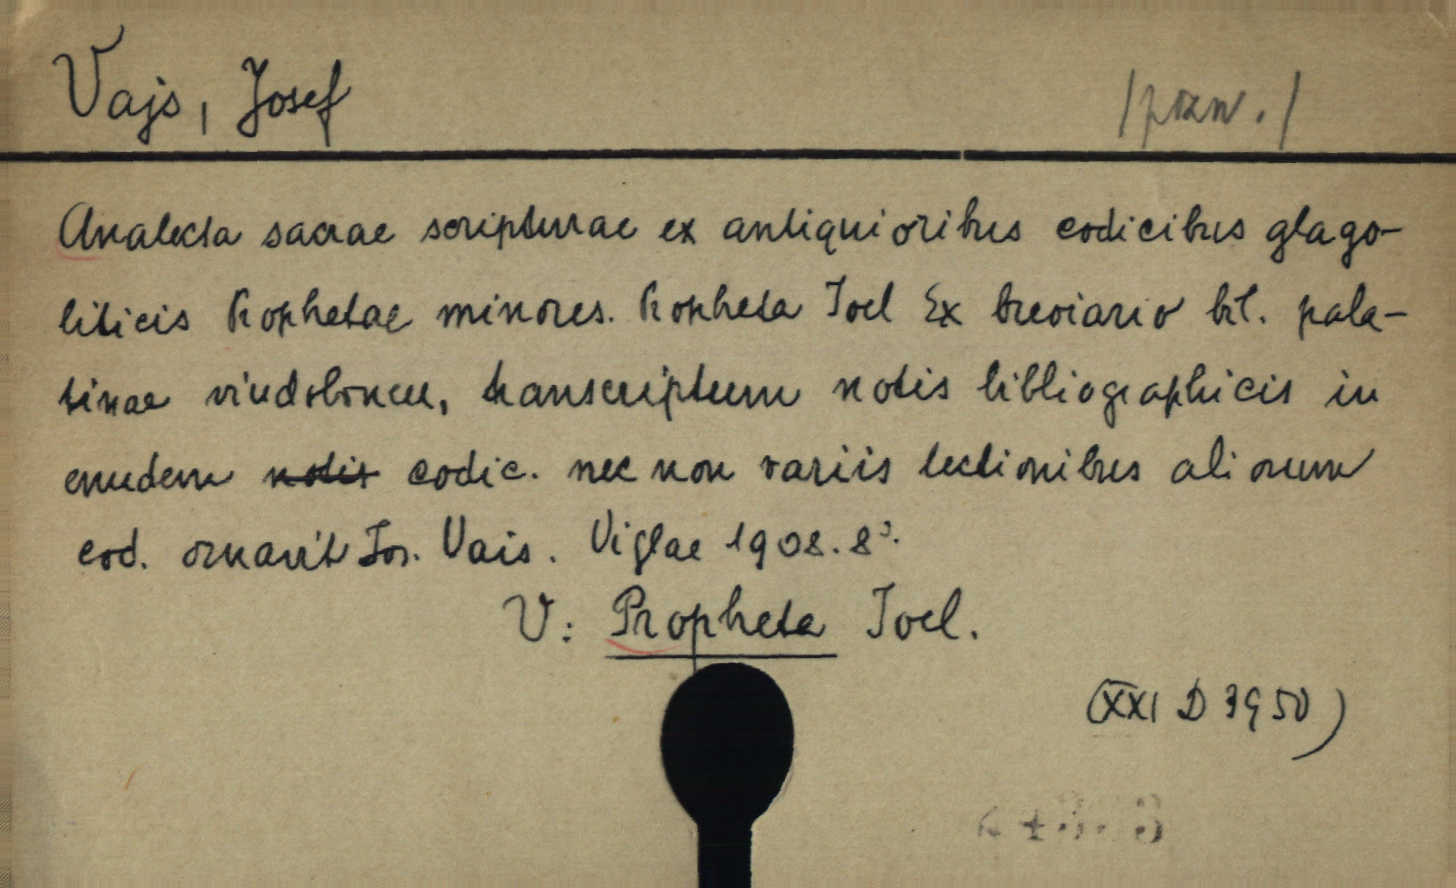 Vajs, Josef /pozn./
Analecta sacrae scripturae ex antiquioribus codicibus glago-
liticis Prophetae minores. Propheta Joel Ex breviario bibl. pala-
tinae vindobonen, transcriptum notis bibliographicis in
emudem notis codic. nec non variis lectionibus aliorum
cod. ornavit Jos. Vais. Viglae 1908. 8°.
V: Propheta Joel.
(XXI D 3950)